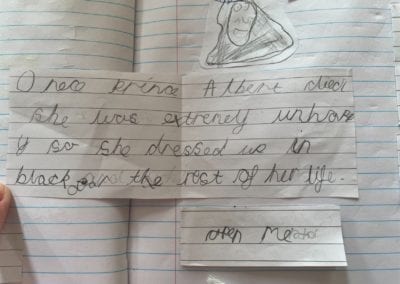 Onec prince Albert died
she was extremely unhapp
y so she dressed us in
black for the rest of her life.
open me